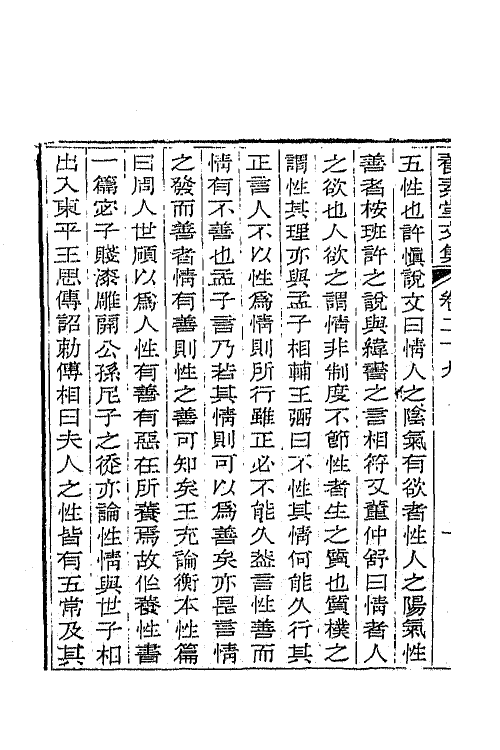 養素堂文集 卷二十九 一
五性也許慎說文曰情人之陰氣有欲者性人之陽氣性
善者桉班許之說與緯書之言相符又董仲舒曰情者人
之欲也人欲之謂情非制度不節性者生之質也質樸之
謂性其理亦與孟子相輔王弼曰不性其情何能久行其
正言人不以性爲情則所行雖正必不能久葢言性善而
情有不善也孟子言乃若其情則可以爲善矣亦是言情
之發而善者情有善則性之善可知矣王充論衡本性篇
曰周人世碩以爲人性有善有惡在所養焉故作養性書
一篇宓子賤漆雕開公孫尼子之徒亦論性情與世子相
出入東平王思傳詔勑傅相曰夫人之性皆有五常及其